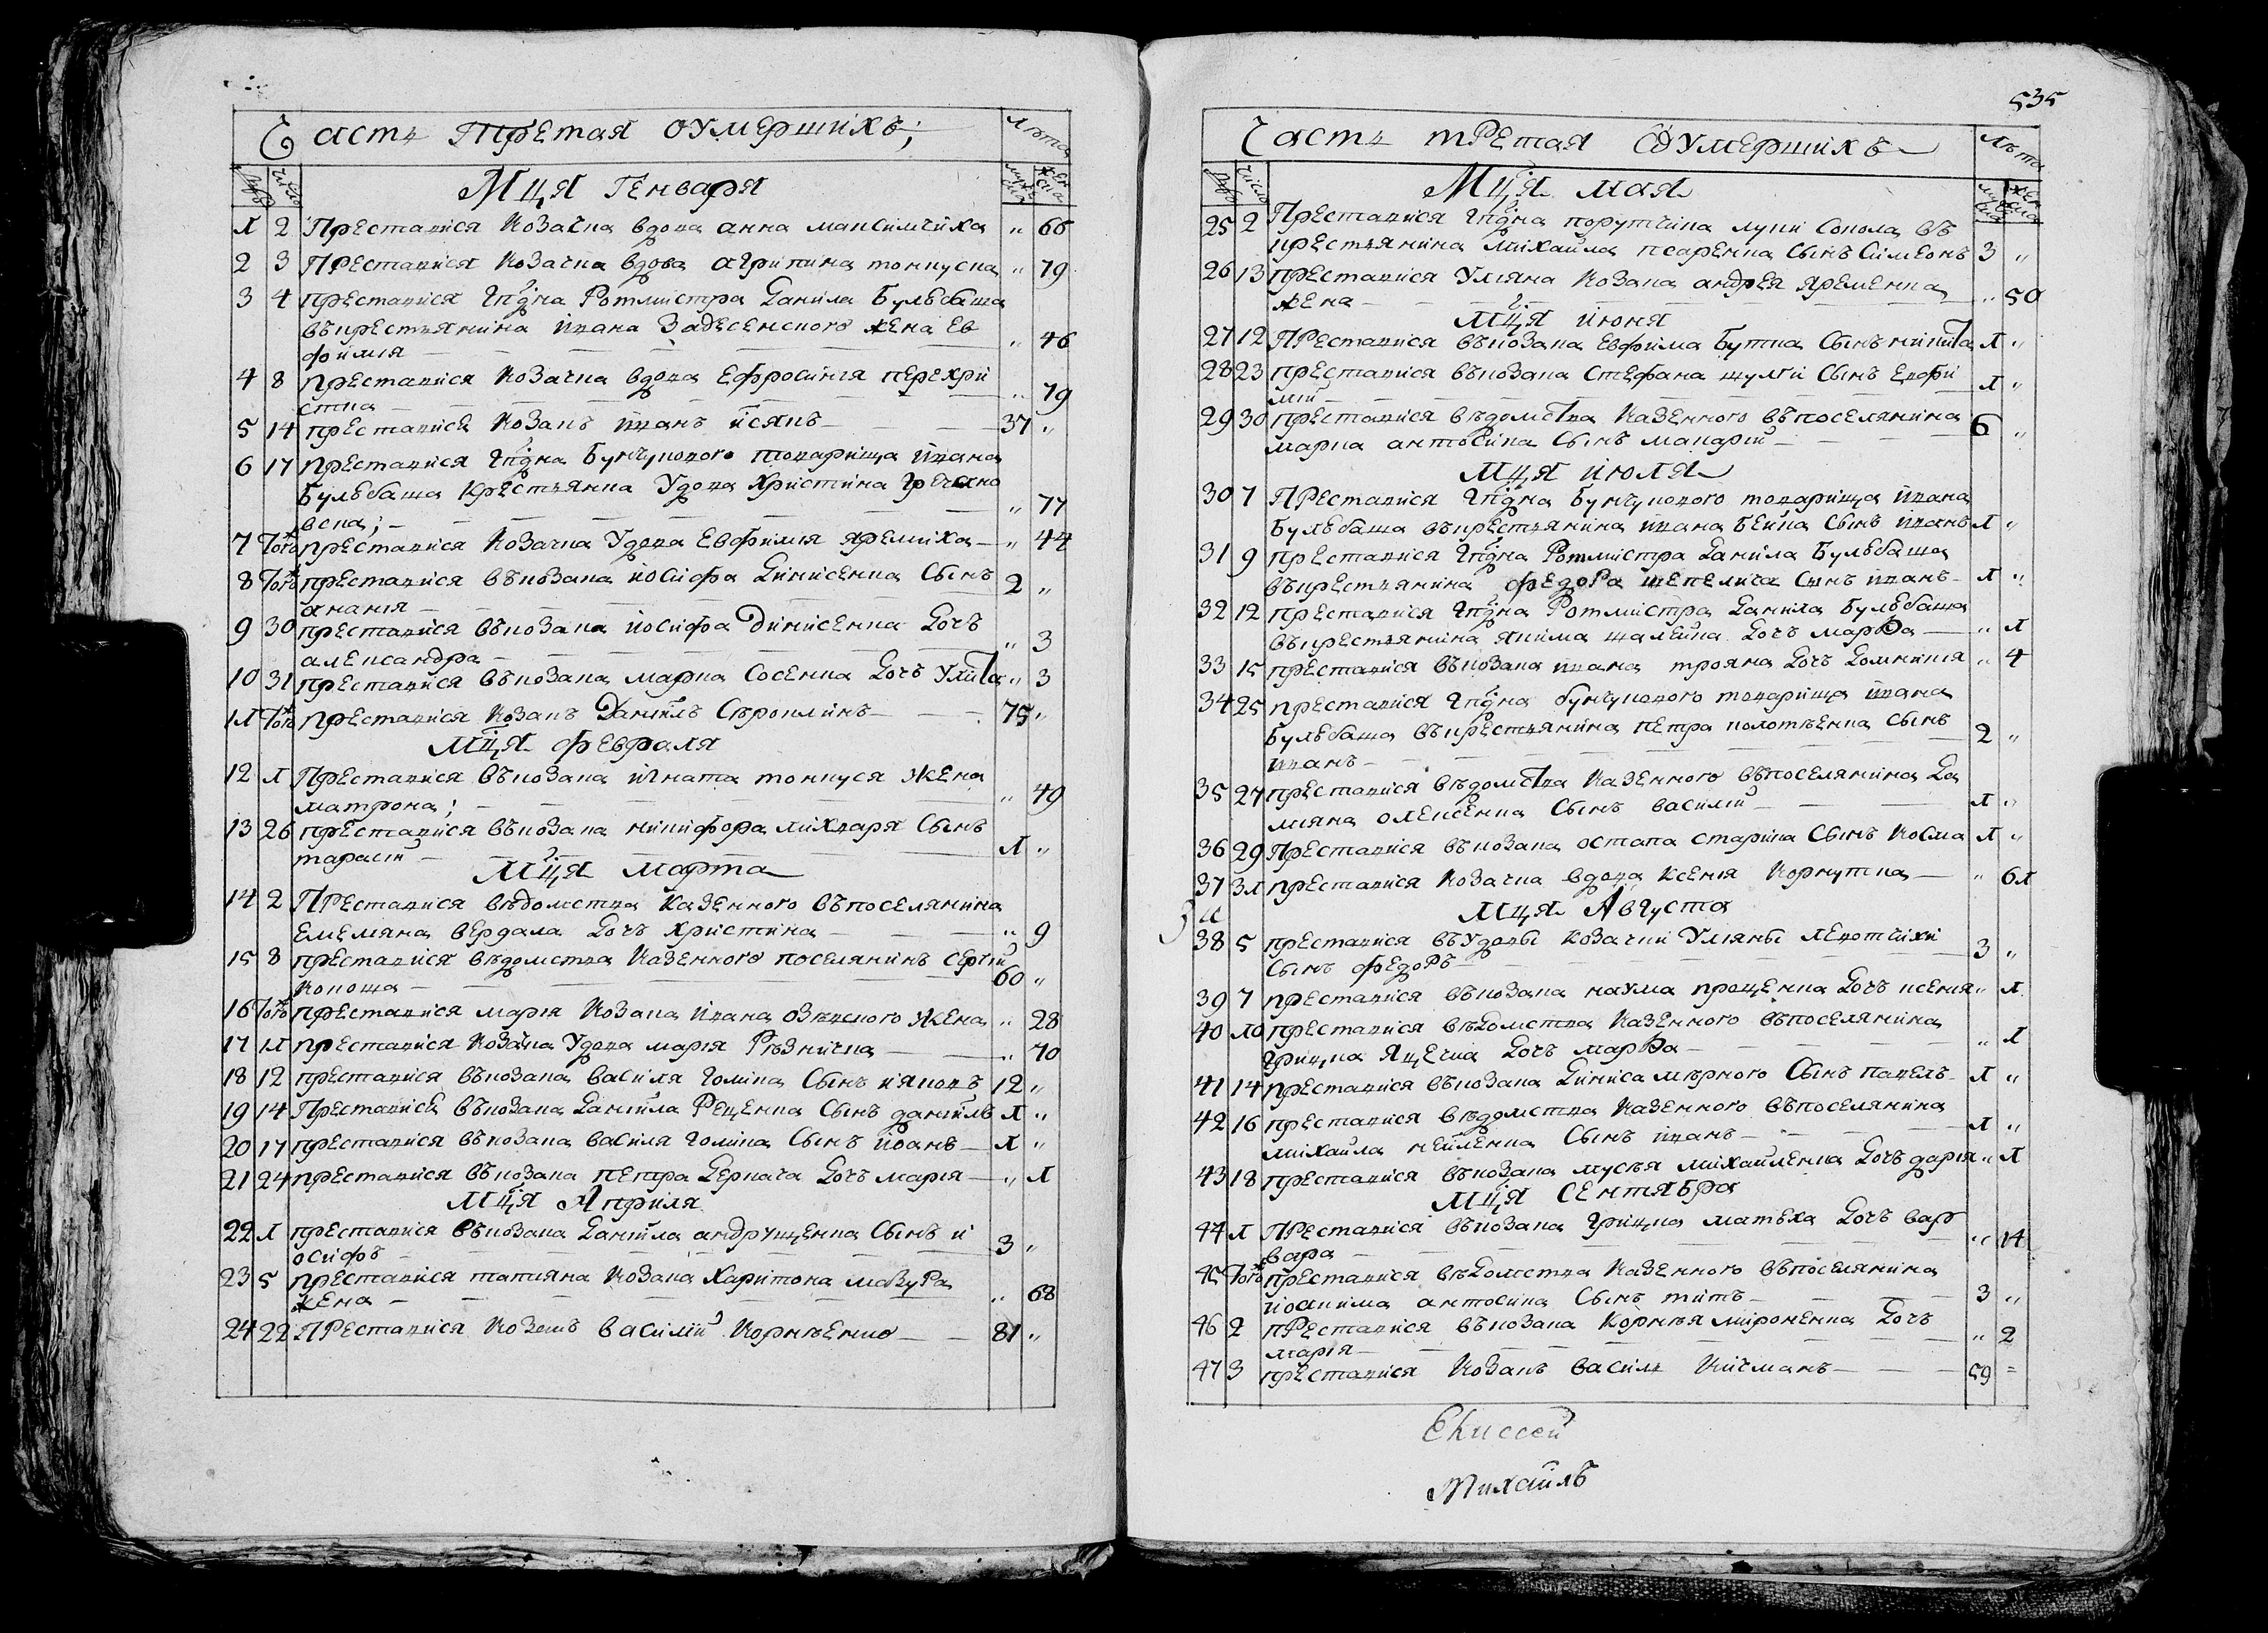 Часть Третая оумершихъ;
Лѣта
Числο
мужеска
женска
Мца Генваря
1 2 Преставися Козачка вдова анна максимчиха " 66
2 3 Преставися козачка вдова агрипина тонкуска " 79
3 4 преставися Гпдна Ротмистра Данила Булюбаша
въкрестьянина ивана Задесенского жена Ев
фимия " 46
4 8 преставися козачка вдова Ефросиния перехри
стка " 79
5 14 преставися козакъ иванъ исакъ 37 "
6 17 преставися Гпдна Бунчукового товарища ивана
Булюбаша Крестьянка Удова Христина Гречано
вска; " 77
7 Тогож преставися козачка Удова Евфимия яремиха " 44
8 Тогож преставися въкозака иосифа Динисенка Сынъ
анания 2 "
9 30 преставися въкозака иосифа Динисенка Дочъ
александра " 3
10 31 преставися въкозака марка Сосенка Дочъ Улита " 3
11 Тогож преставися козакъ Даниилъ Сѣроклинъ 75 "
Мца февраля
12 1 Преставися въкозака игната тонкуся жена
матрона; " 49
13 26 преставися въкозака никифора лихваря Сынъ
тарасий 1 "
Мца марта
14 2 Преставися вѣдомства казенного въпоселянина
Емемяна вердала Дочъ христина " 9
15 8 преставися вѣдомства казенного поселянинъ сергий
коноша 60 "
16 Тогож преставися мария козака ивана озѣвского жена " 28
17 11 преставися козачка Удова мария Рѣзничка " 70
18 12 преставися въкозака василя голика Сынъ ияковъ 12 "
19 14 Преставися въкозака Даниила Реценка Сынъ данииль 1 "
20 17 преставися въкозака василя голика Сынъ иоанъ 1 "
21 24 преставися въкозака петра Деркача Дочъ мария " 1
Мца Априля
22 1 преставися въкозака Даниила андрущенка Сынъ и
осифъ 3 "
23 5 преставися татияна козака Харитона мазура
жена " 68
24 22 Преставися козакъ василий корнѣенко 81 "
535
Часть третая оумершихъ
Лѣта
Число
мужеска
женска
Мца мая
25 2 Преставися Гпдна порутчика луки Сокола въ
крестьянина михайла псаренка Сынъ Симеонъ 3 "
26 13 преставися Уляна козака андрея яременка
жена " 50
Мца июня
27 12 Преставися въкозака Евфима Бутка Сынъ никита 1 "
28 23 преставися въкозака Стефана шулги Сынъ Евфи
мий 1 "
29 30 преставися вѣдомства казенного въпоселянина
марка антосика Сынъ макарий 6 "
Мца июля
30 7 Преставися Гпдна Бунчукового товарища ивана
Булюбаша въкрестьянина ивана Бейка Сынъ иванъ 1 "
31 9 преставися Гпдна Ротмистра Данила Булюбаша
въкрестьянина федора шепелича Сынъ иванъ 1 "
32 12 преставися Гпдна Ротмистра Данила Булюбаша
въкрестьянина якима шалейка Дочъ марѳа " 1
33 15 преставися въкозака ивана трояна Дочъ Домникия " 4
34 25 преставися Гпдна бунчукового товарища ивана
Булюбаша въкрестьянина петра колотѣенка Сынъ
иванъ 2 "
35 27 преставися вѣдомства казенного въпоселянина Да
мияна олексенка Сынъ василий 1 "
36 29 Преставися въкозака остапа старика Сынъ косма 1 "
37 31 преставися козачка вдова ксения корнутка " 61
Мца Августа
38 5 преставися въУдовы козачки Улияны левотчихи
Сынъ федоръ 3 "
39 7 преставися въкозака наума проценка Дочъ ксения " 1
40 10 преставися вѣдомства казенного въпоселянина
Грицка яценка Дочъ марѳа " 1
41 14 преставися въкозака Диниса мѣрного Сынъ павелъ 1 "
42 16 преставися вѣдомства казенного въпоселянина
михайла нейленка Сынъ иванъ 1 "
43 18 преставися въкозака мусѣя михайленка Дочъ дария " 1
Мца Сентября
44 1 Преставися въкозака Грицка матѣха Дочъ вар
вара " 14
45 Тогож преставися вѣдомства казенного въпоселянина
иоакима антосика Сынъ титъ 3 "
46 2 Преставися въкозака корнѣя мироненка Дочъ
мария " 2
47 3 преставися козакъ василь кичманъ 59 "
Елиссей
Михаилъ